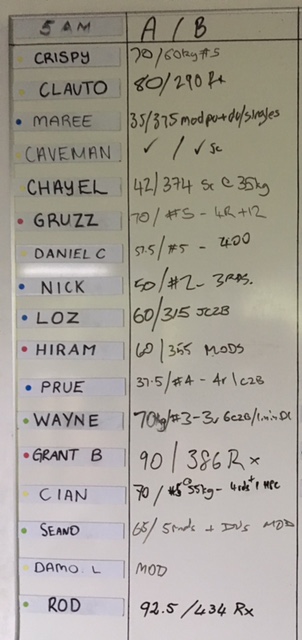 5 AM A / B
CRISPY 70/60kg #5
CLAUTO 80/290 Rx
MAREE 35/375 mod du/singles
CAVEMAN ✓ / ✓ Sc
CHAYEL 42/374 Sc @ 35kg
GRUZZ 70 / #5 - 4R +12
DANIEL C 57.5/#5 - 400
NICK 50/#2 - 3RDS.
LOZ 60/315 JC2B
HIRAM 60/355 MODS
PRUE 37.5/#4 - 4r 1 C2B
WAYNE 70kg/#3-3r 6C2B/1min DL
GRANT B 90 / 386 Rx
CIAN 70 / #5 @ 55kg - 4rds + 1
SEANO 65/5rnds + DUS MOD
DAMO L MOD
ROD 92.5/434 Rx